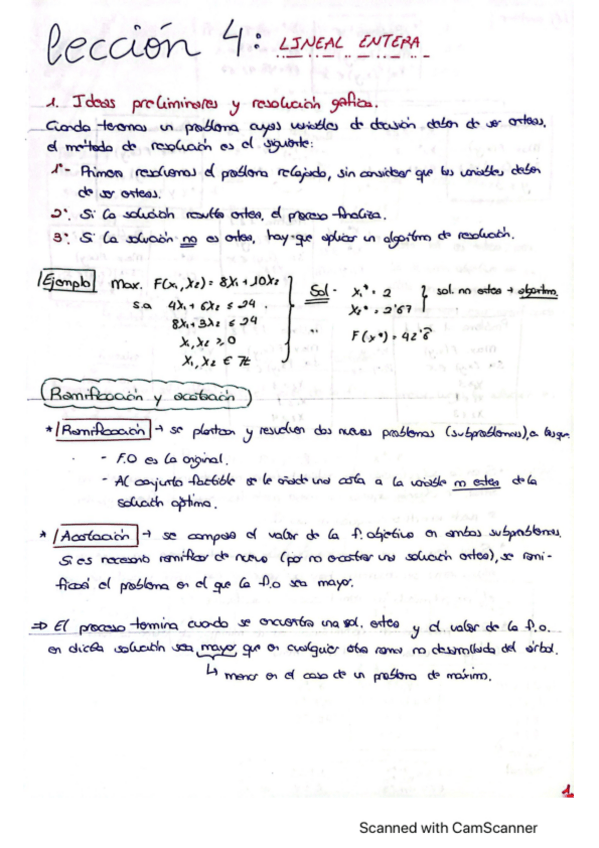 lección 4: LINEAL ENTERA
1. Ideas preliminares y resolución gráfica.
Cuando tenemos un problema cuyas variables de decisión deben de ser enteras,
el método de resolución es el siguiente:
1º- Primero resolvemos el problema relajado, sin considerar que las variables deben
de ser enteras.
2º. Si la solución resulta entera, el proceso finaliza.
3º. Si la solución no es entera, hay que aplicar un algoritmo de resolución.
Ejemplo Max. F(x₁, x₂) = 8x₁ + 10x₂ Sol - x₁* = 2 sol. no entera → algoritmo.
s.a 4x₁ + 6x₂ ≤ 24. x₂* = 2'67
8x₁ + 3x₂ ≤ 24 " F(x*) = 42'6̂
x₁, x₂ ≥ 0
x₁, x₂ ∈ ℤ
Ramificación y acotación
* Ramificación → se plantean y resuelven dos nuevos problemas (subproblemas), a los que
- F.O es la original.
- Al conjunto factible se le añade una cota a la variable no entera de la
solución óptima.
* Acotación → se compara el valor de la f. objetivo en ambos subproblemas.
Si es necesario ramificar de nuevo (por no encontrar una solución entera), se rami-
ficará el problema en el que la f.o sea mayor.
⇒ El proceso termina cuando se encuentra una sol. entera y el valor de la f.o.
en dicha solución sea mayor que en cualquier otra rama no desarrollada del árbol.
↳ menor en el caso de un problema de máximo.
1.
Scanned with CamScanner